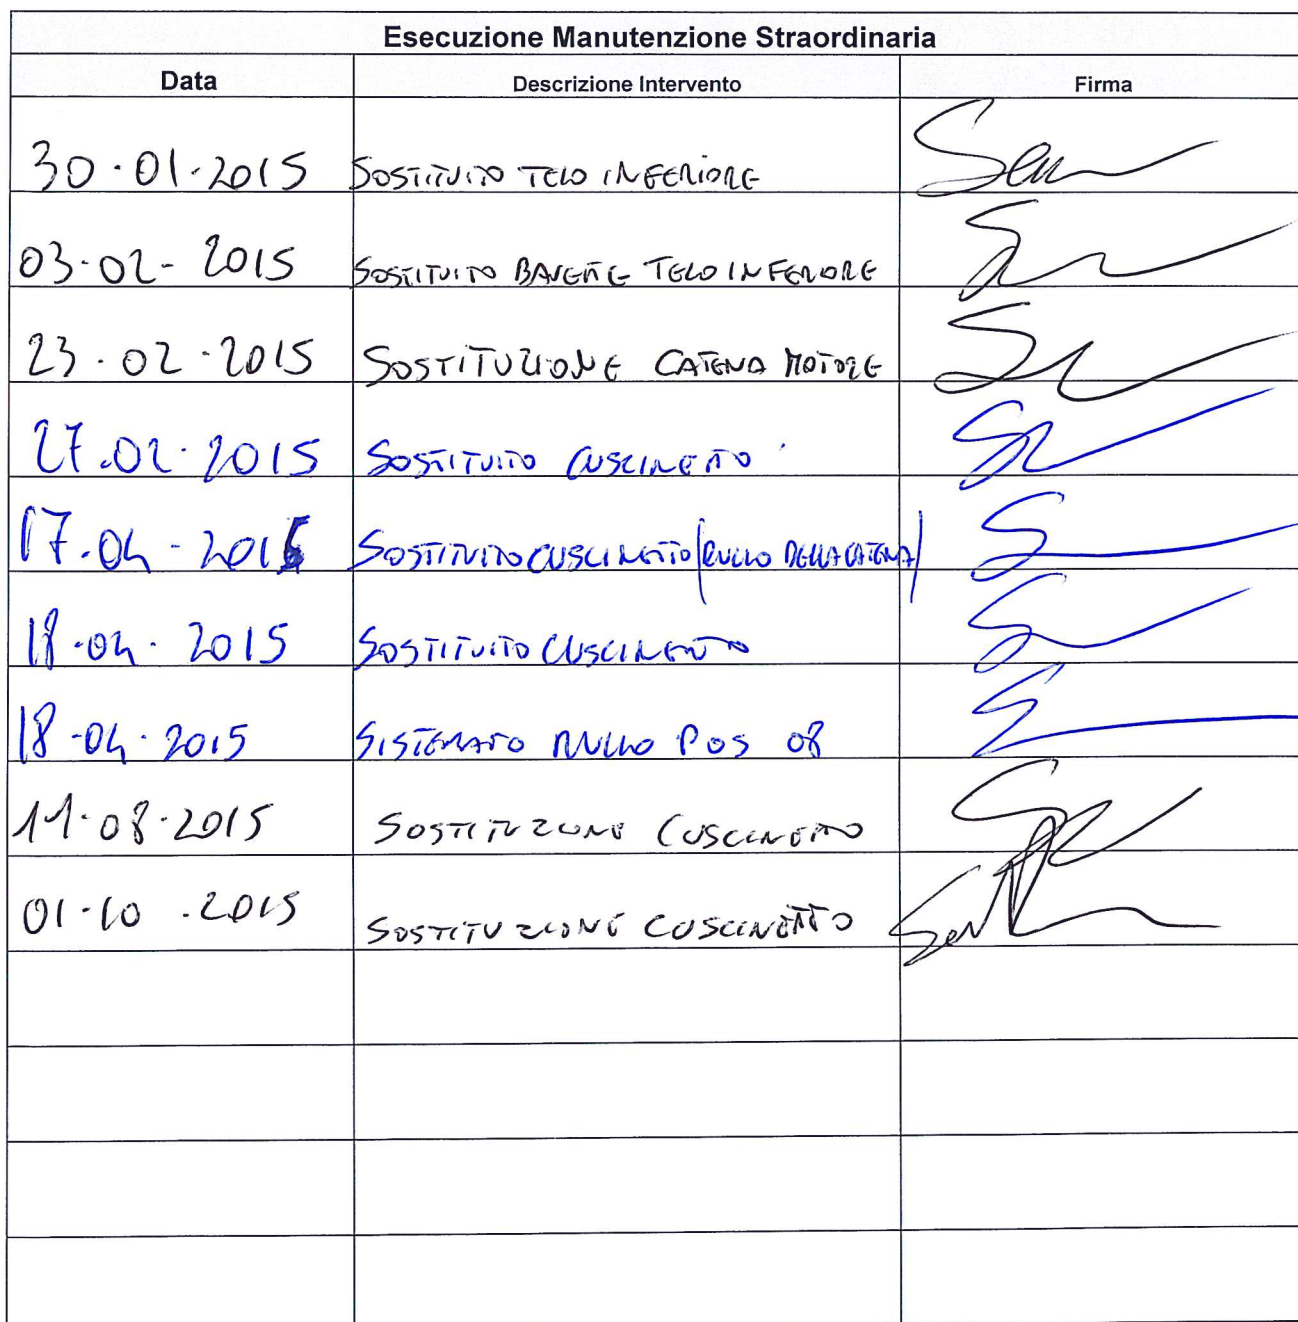 Esecuzione Manutenzione Straordinaria
Data Descrizione Intervento Firma
30-01-2015 SOSTITUITO TELO INFERIORE
03-02-2015 SOSTITUITO TELO INFERIORE
23-02-2015 SOSTITUZIONE CATENA MOTORE
27-02-2015 SOSTITUITO CUSCINETTO
17-04-2015 SOSTITUITO CUSCINETTO (RULLO DELLA CATENA)
18-04-2015 SOSTITUITO CUSCINETTO
18-04-2015 SISTEMATO RULLO POS 08
11-08-2015 SOSTITUZIONE CUSCINETTO
01-10-2015 SOSTITUZIONE CUSCINETTO